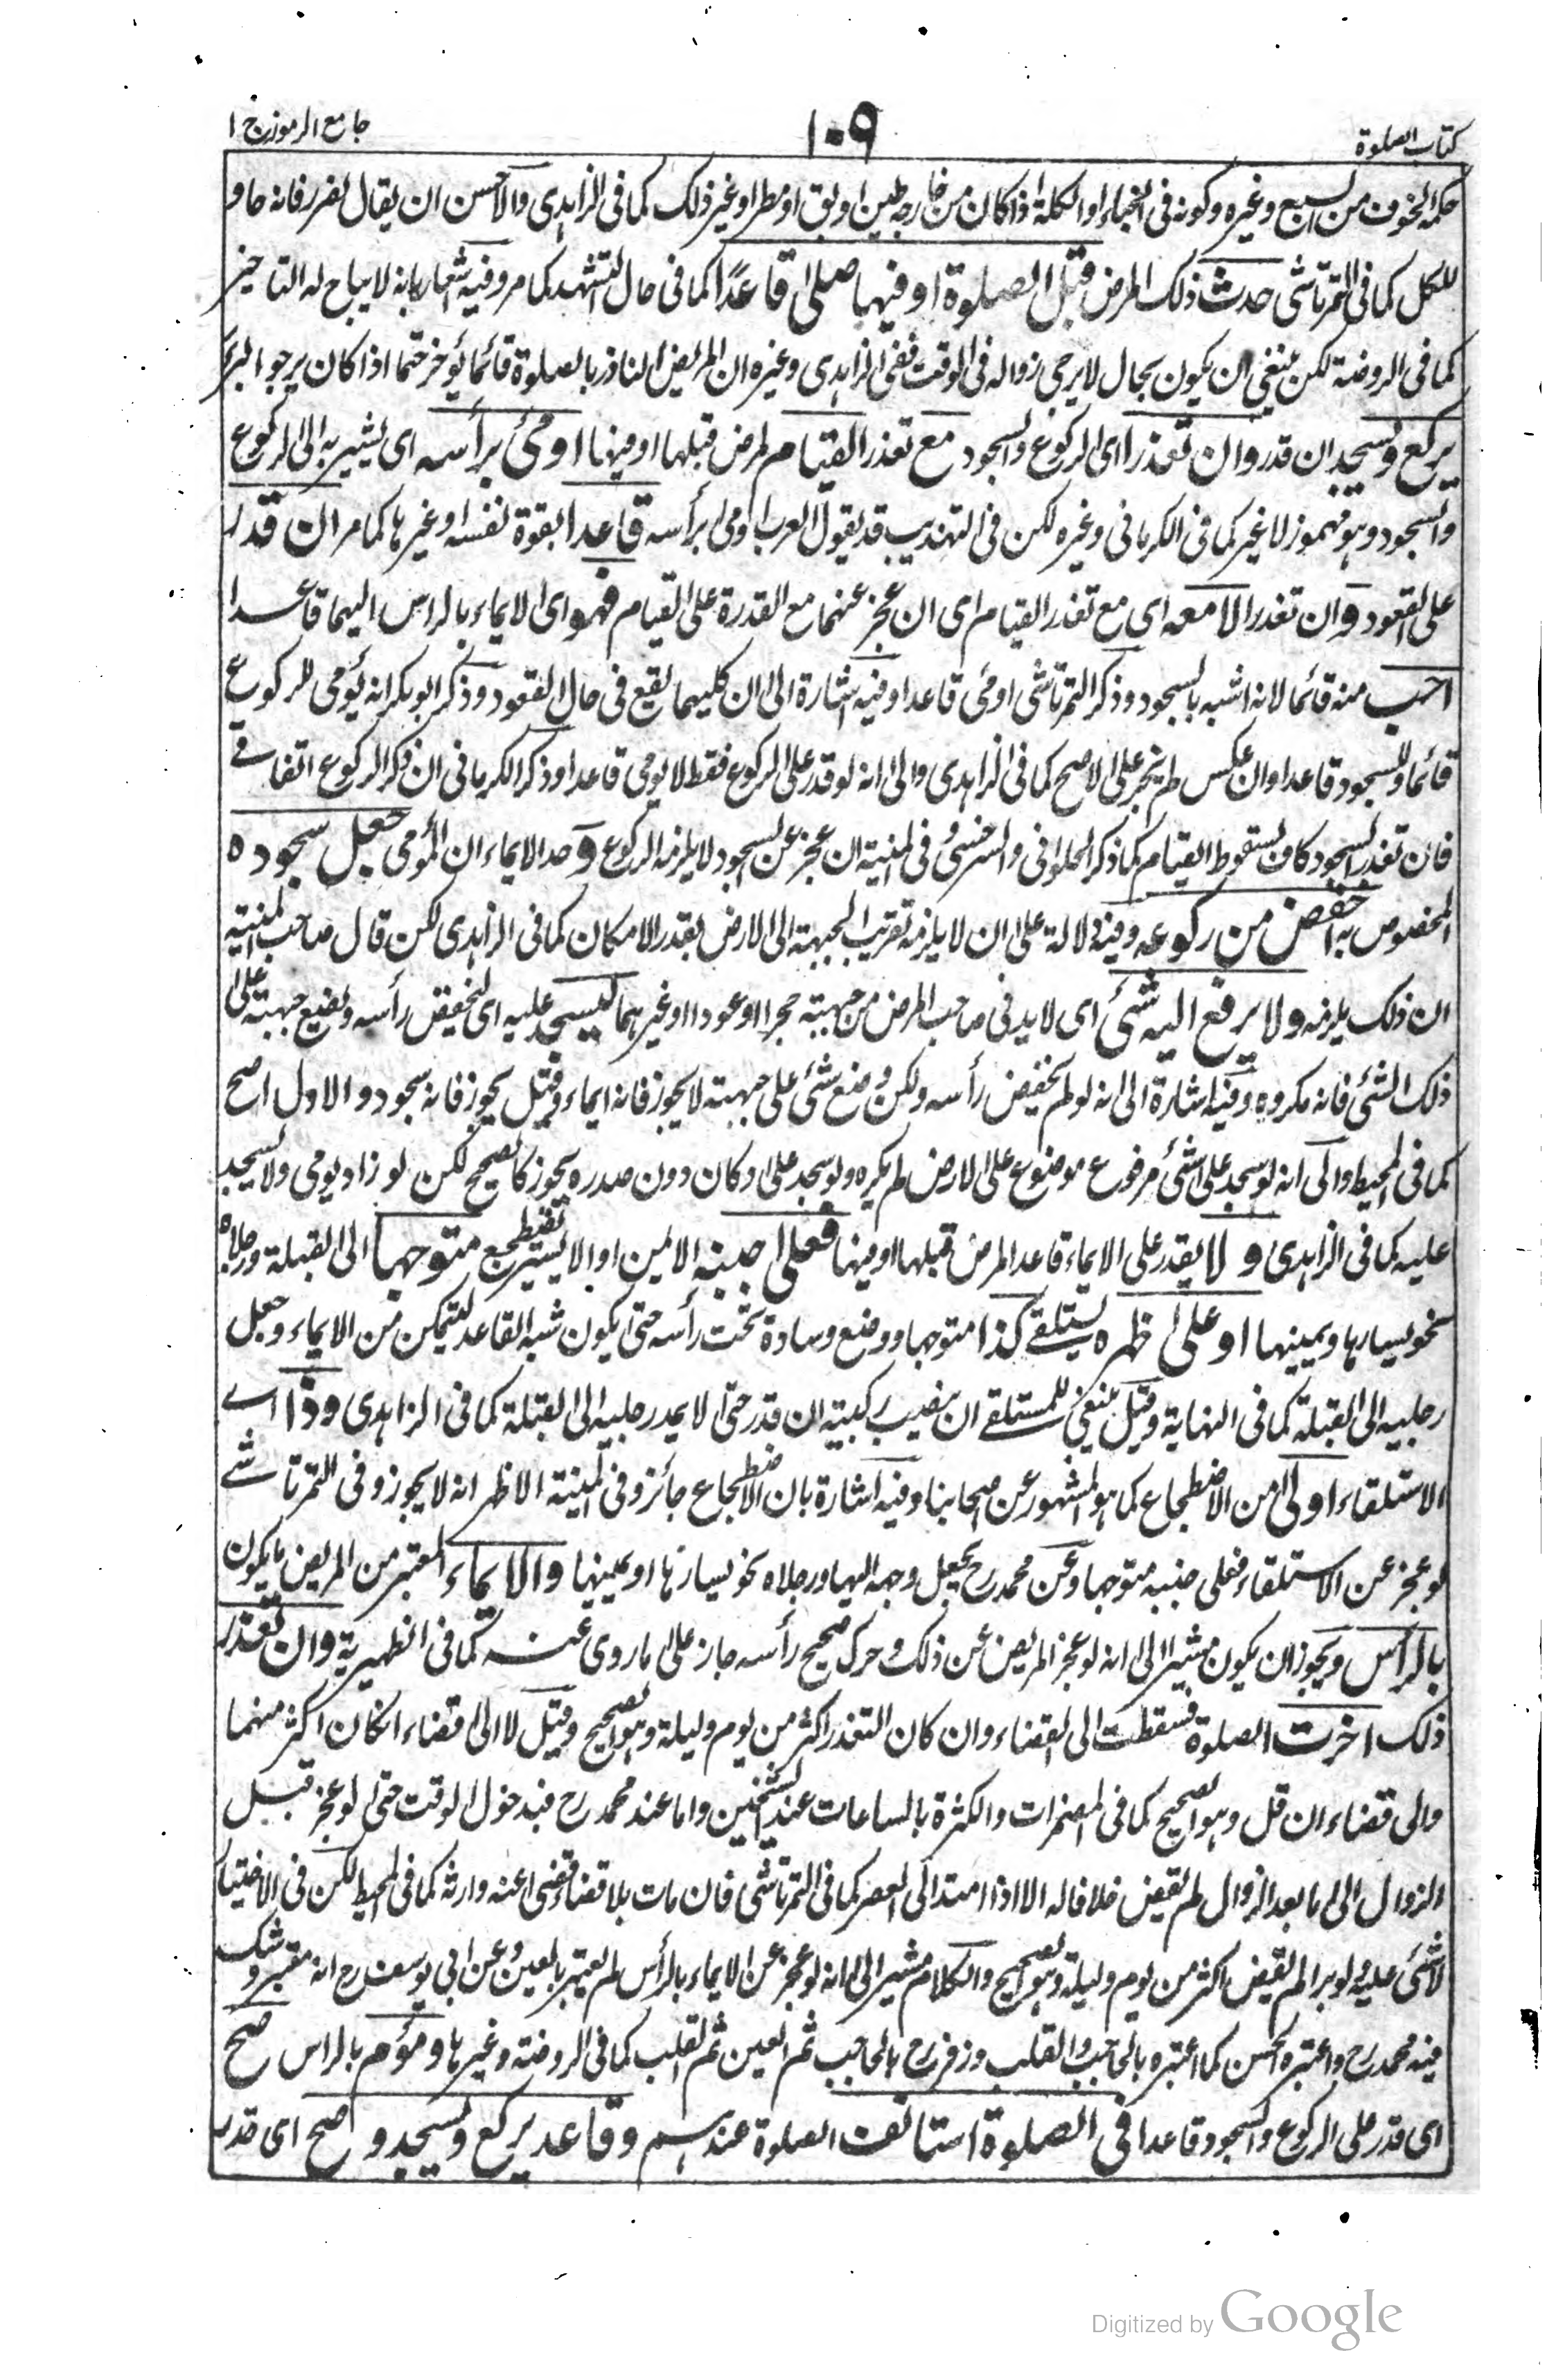 كتاب الصلوة
١٠٩
جامع الرموز ج ١
حكمه الخوف من السبع وغيره وكونه فى الخباء او الكلة اذا كان من خارجه طين او بق او مطر او غير ذلك كما فى الزاهدى والاحسن ان يقال لضرر فانه حاو
للكل كما فى التمرتاشى حدث ذلك المرض قبل الصلوة او فيها صلى قاعدا كما فى حال التشهد كما مر وفيه اشعار بانه لا يباح له التاخير
كما فى الروضة لكن ينبغى ان يكون بحال لا يرجى زواله فى الوقت ففى الزاهدى وغيره ان المريض الناذر بالصلوة قائما يؤخر حتما اذا كان يرجو البرء
يركع ويسجد ان قدر وان تعذرا اى الركوع والسجود مع تعذر القيام لمرض قبلها او فيها اومئ برأسه اى يشير به الى الركوع
والسجود وهو مهموز لا غير كما فى الكرمانى وغيره لكن فى التهذيب قد يقول العرب اومى برأسه قاعدا بقوة نفسه او غيرها كما مر ان قدر
على القعود وان تعذرا لا معه اى مع تعذر القيام اى ان عجز عنهما مع القدرة على القيام فهو اى الايماء بالراس اليهما قاعدا
احب منه قائما لانه اشبه بالسجود وذكر التمرتاشى اومئ قاعدا وفيه اشارة الى ان كليهما يقع فى حال القعود وذكر ابو بكر انه يؤمى للركوع
قائما وللسجود قاعدا وان عكس لم يجز على الاصح كما فى الزاهدى والى انه لو قدر على الركوع فقط لا يومى قاعدا وذكر الكرمانى ان ذكر الركوع اتفاقى
فان تعذر السجود كاف لسقوط القيام كما ذكر الحلوانى والسرخسى وفى المنية ان عجز عن السجود لا يلزمه الركوع وحد الايماء ان المؤمى جعل سجوده
المخصوص به اخفض من ركوعه وفيه دلالة على ان لا يلزمه تقريب الجبهة الى الارض بقدر الامكان كما فى الزاهدى لكن قال صاحب المنية
ان ذلك يلزمه ولا يرفع اليه شئ اى لا يدنى صاحب المرض من جبهته حجرا او عودا او غيرهما ليسجد عليه اى ليخفض رأسه ويضع جبهته على
ذلك الشئ فانه مكروه وفيه اشارة الى انه لو لم يخفض رأسه ولكن وضع شئ على جبهته لا يجوز فانه ايماء وقيل يجوز فانه سجود والاول اصح
كما فى المحيط والى انه لو سجد على شئ مرفوع موضوع على الارض لم يكره ولو سجد على دكان دون صدره يجوز كالصحيح لكن لو زاد يومى ولا يسجد
عليه كما فى الزاهدى و لا يقدر على الايماء قاعدا لمرض قبلها او فيها فعلى جنبه الايمن او الايسر يضطجع متوجها الى القبلة ورجلاه
نحو يسارها ويمينها او على ظهره يستلقى كذا متوجها ووضع وسادة تحت رأسه حتى يكون شبه القاعد ليتمكن من الايماء وجعل
رجليه الى القبلة كما فى النهاية وقيل ينبغى للمستلقى ان ينصب ركبتيه ان قدر حتى لا يمد رجليه الى القبلة كما فى الزاهدى وذا اى
الاستلقاء اولى من الاضطجاع كما هو المشهور عن اصحابنا وفيه اشارة بان الاضطجاع جائز وفى المنية الاظهر انه لا يجوز وفى التمرتاشى
لو عجز عن الاستلقاء فعلى جنبه متوجها وعن محمد رح يجعل وجهه اليها ورجلاه نحو يسارها او يمينها والايماء المعتبر من المريض ما يكون
بالرأس ويجوز ان يكون مشيرا الى انه لو عجز المريض عن ذلك وحرك صحيح رأسه جاز على ما روى عنه كما فى الظهيرية وان تعذر
ذلك اخرت الصلوة فسقطت الى القضاء وان كان التعذر اكثر من يوم وليلة وهو الصحيح وقيل لا الى قضاء ان كان اكثر منهما
والى قضاء ان قل وهو الصحيح كما فى المضمرات والكثرة بالساعات عند الشيخين واما عند محمد رح فبدخول الوقت حتى لو عجز قبل
الزوال الى ما بعد الزوال لم يقض خلافا له الا اذا امتد الى العصر كما فى التمرتاشى فان مات بلا قضاء قضى عنه وارثه كما فى المحيط لكن فى الاختيار
لا شئ عليه ولو برا لم يقض اكثر من يوم وليلة وهو الصحيح والكلام مشير الى انه لو عجز عن الايماء بالرأس لم يعتبر بالعين وعن ابى يوسف رح انه معتبر وشك
فيه محمد رح واعتبره الحسن كما اعتبره بالحاجب والقلب وزفر رح بالحاجب ثم العين ثم القلب كما فى الروضة وغيرها ومؤم بالراس صح
اى قدر على الركوع والسجود قاعدا فى الصلوة استانف الصلوة عندهم وقاعد يركع ويسجد و صح اى قدر
Digitized by Google